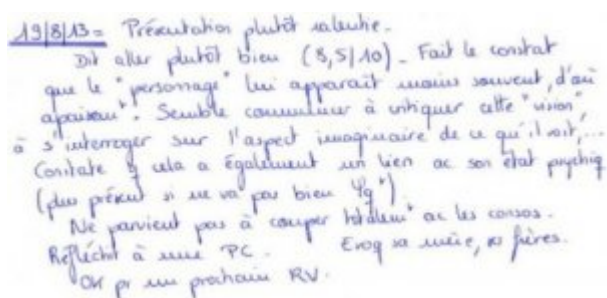 19/8/13 = Présentation plutôt ralentie.
Dit aller plutôt bien (8,5/10). Fait le constat
que le "personnage" lui apparait moins souvent, d'où
apaisemt. Semble commencer à critiquer cette "vision",
à s'interroger sur l'aspect imaginaire de ce qu'il voit,...
Constate q cela a également un lien ac son état psychiq
(plus présent si ne va pas bien ψqt).
Ne parvient pas à couper totalemt ac les consos.
Réfléchit à une PC. Evoq sa mère, ses frères.
OK pr un prochain RV.